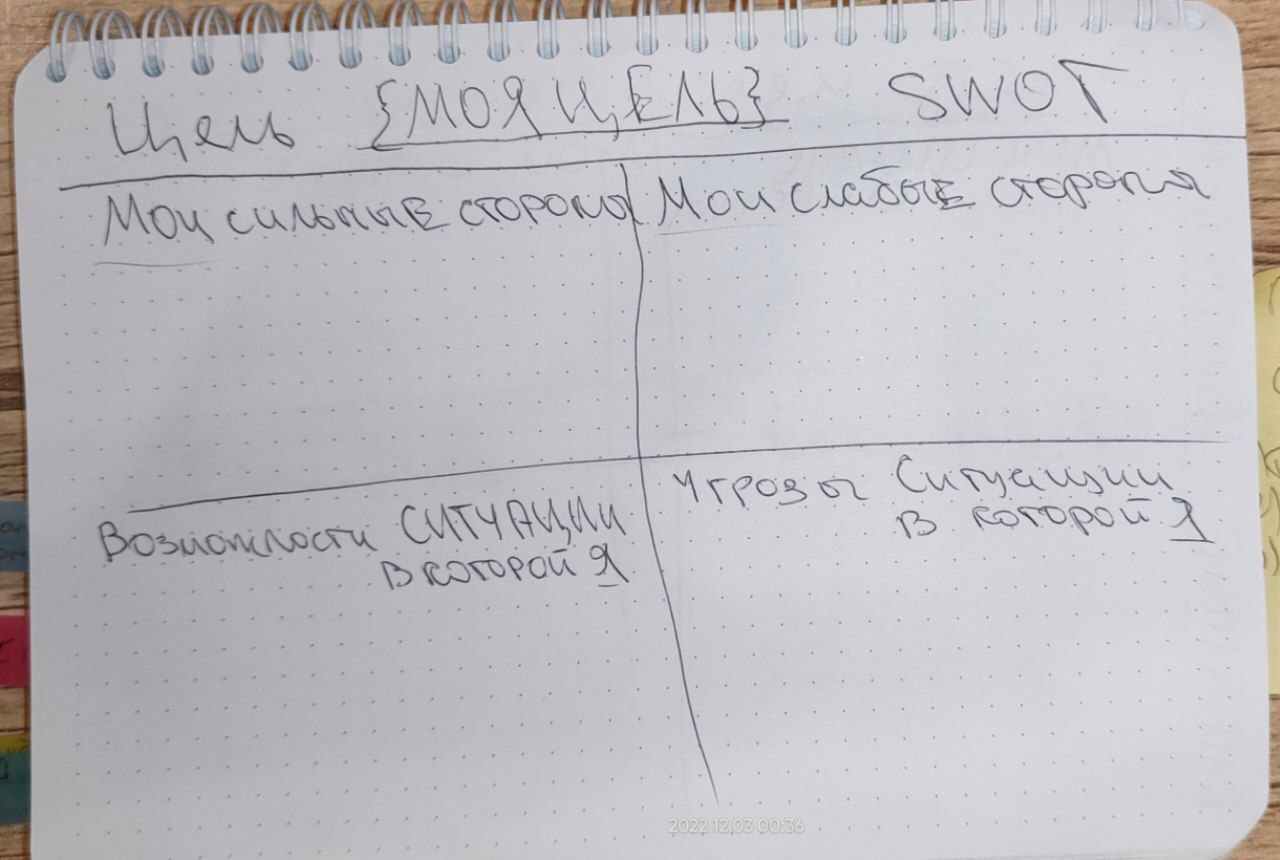 Цель {МОЯ ЦЕЛЬ} SWOT
Мои сильные стороны
Мои слабые стороны
Возможности СИТУАЦИИ
в которой Я
Угрозы Ситуации
в которой Я
2022.12.03 00:36